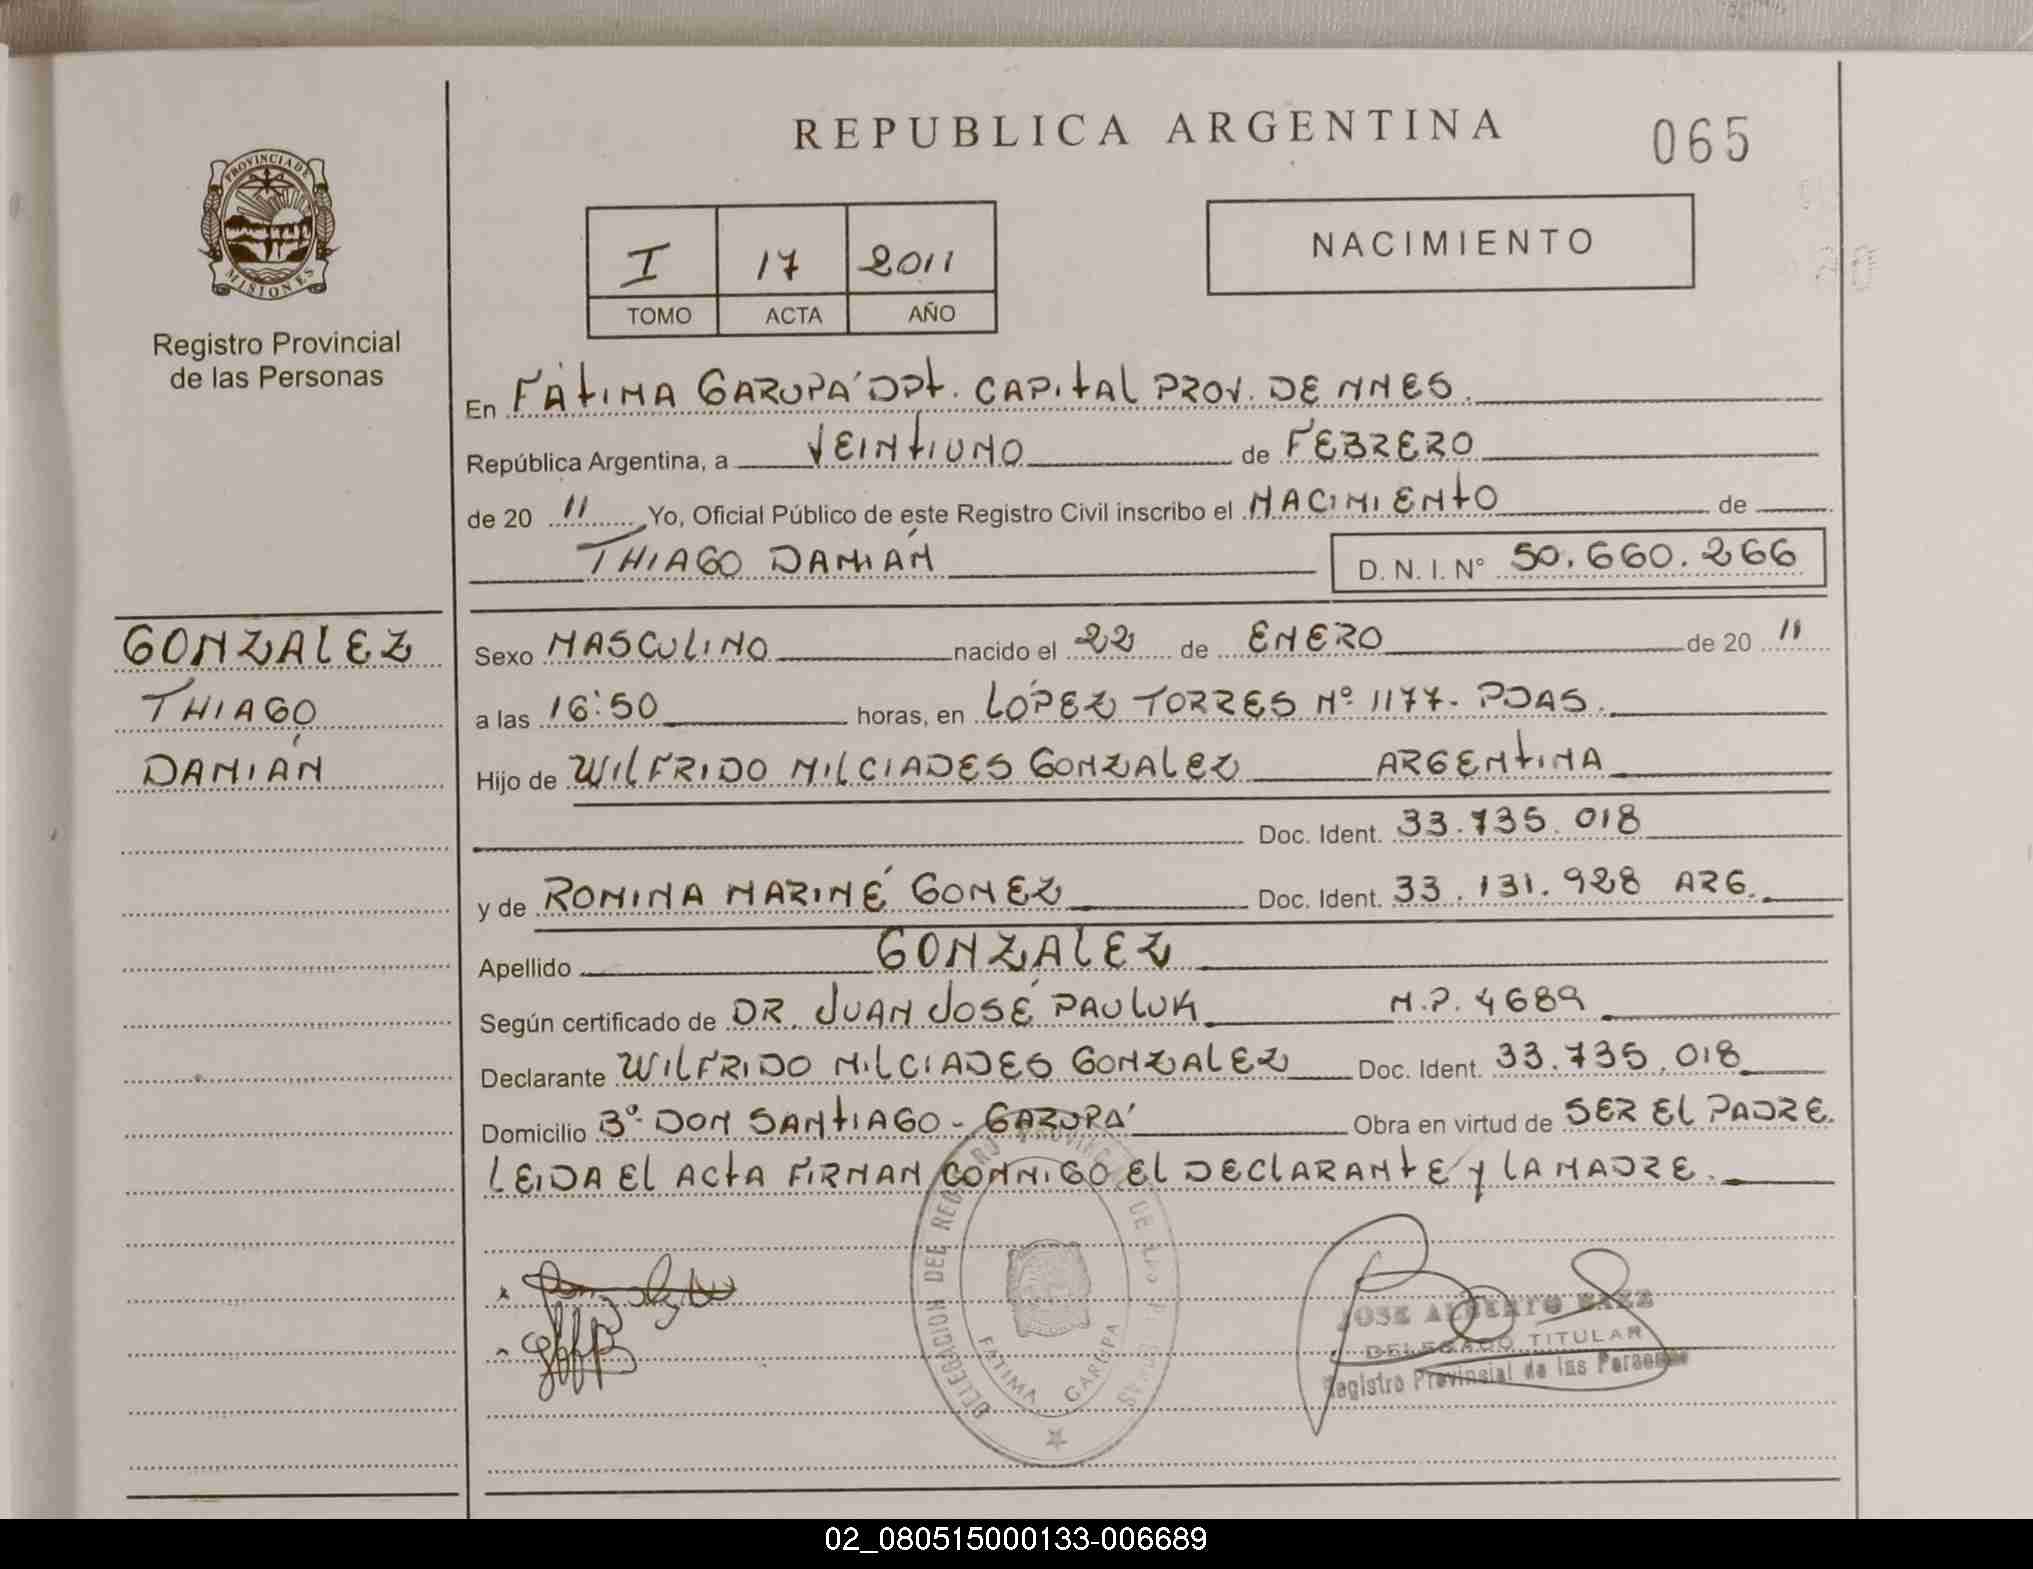 REPUBLICA ARGENTINA
065
PROVINCIA DE
MISIONES
Registro Provincial
de las Personas
I 17 2011
TOMO ACTA AÑO
NACIMIENTO
En FÁTIMA GARUPÁ DPT. CAPITAL PROV. DE MNES.
República Argentina, a VEINTIUNO de FEBRERO
de 20 11 Yo, Oficial Público de este Registro Civil inscribo el NACIMIENTO de
THIAGO DAMIÁN D. N. I. N° 50.660.266
GONZALEZ
THIAGO
DAMIÁN
Sexo MASCULINO nacido el 22 de ENERO de 20 11
a las 16:50 horas, en LÓPEZ TORRES Nº 1177- PDAS.
Hijo de WILFRIDO MILCIADES GONZALEZ ARGENTINA
Doc. Ident. 33.735.018
y de ROMINA MARINÉ GOMEZ Doc. Ident. 33.131.928 ARG.
Apellido GONZALEZ
Según certificado de DR. JUAN JOSÉ PAULUK M.P. 4689
Declarante WILFRIDO MILCIADES GONZALEZ Doc. Ident. 33.735.018
Domicilio Bº DON SANTIAGO - GARUPÁ Obra en virtud de SER EL PADRE.
LEIDA EL ACTA FIRMAN CONMIGO EL DECLARANTE Y LA MADRE.
DELEGACION DEL REGISTRO PROVINCIAL DE LAS PERSONAS
FATIMA GARUPA
JOSE ALBERTO BAEZ
DELEGADO TITULAR
Registro Provincial de las Personas
02_080515000133-006689